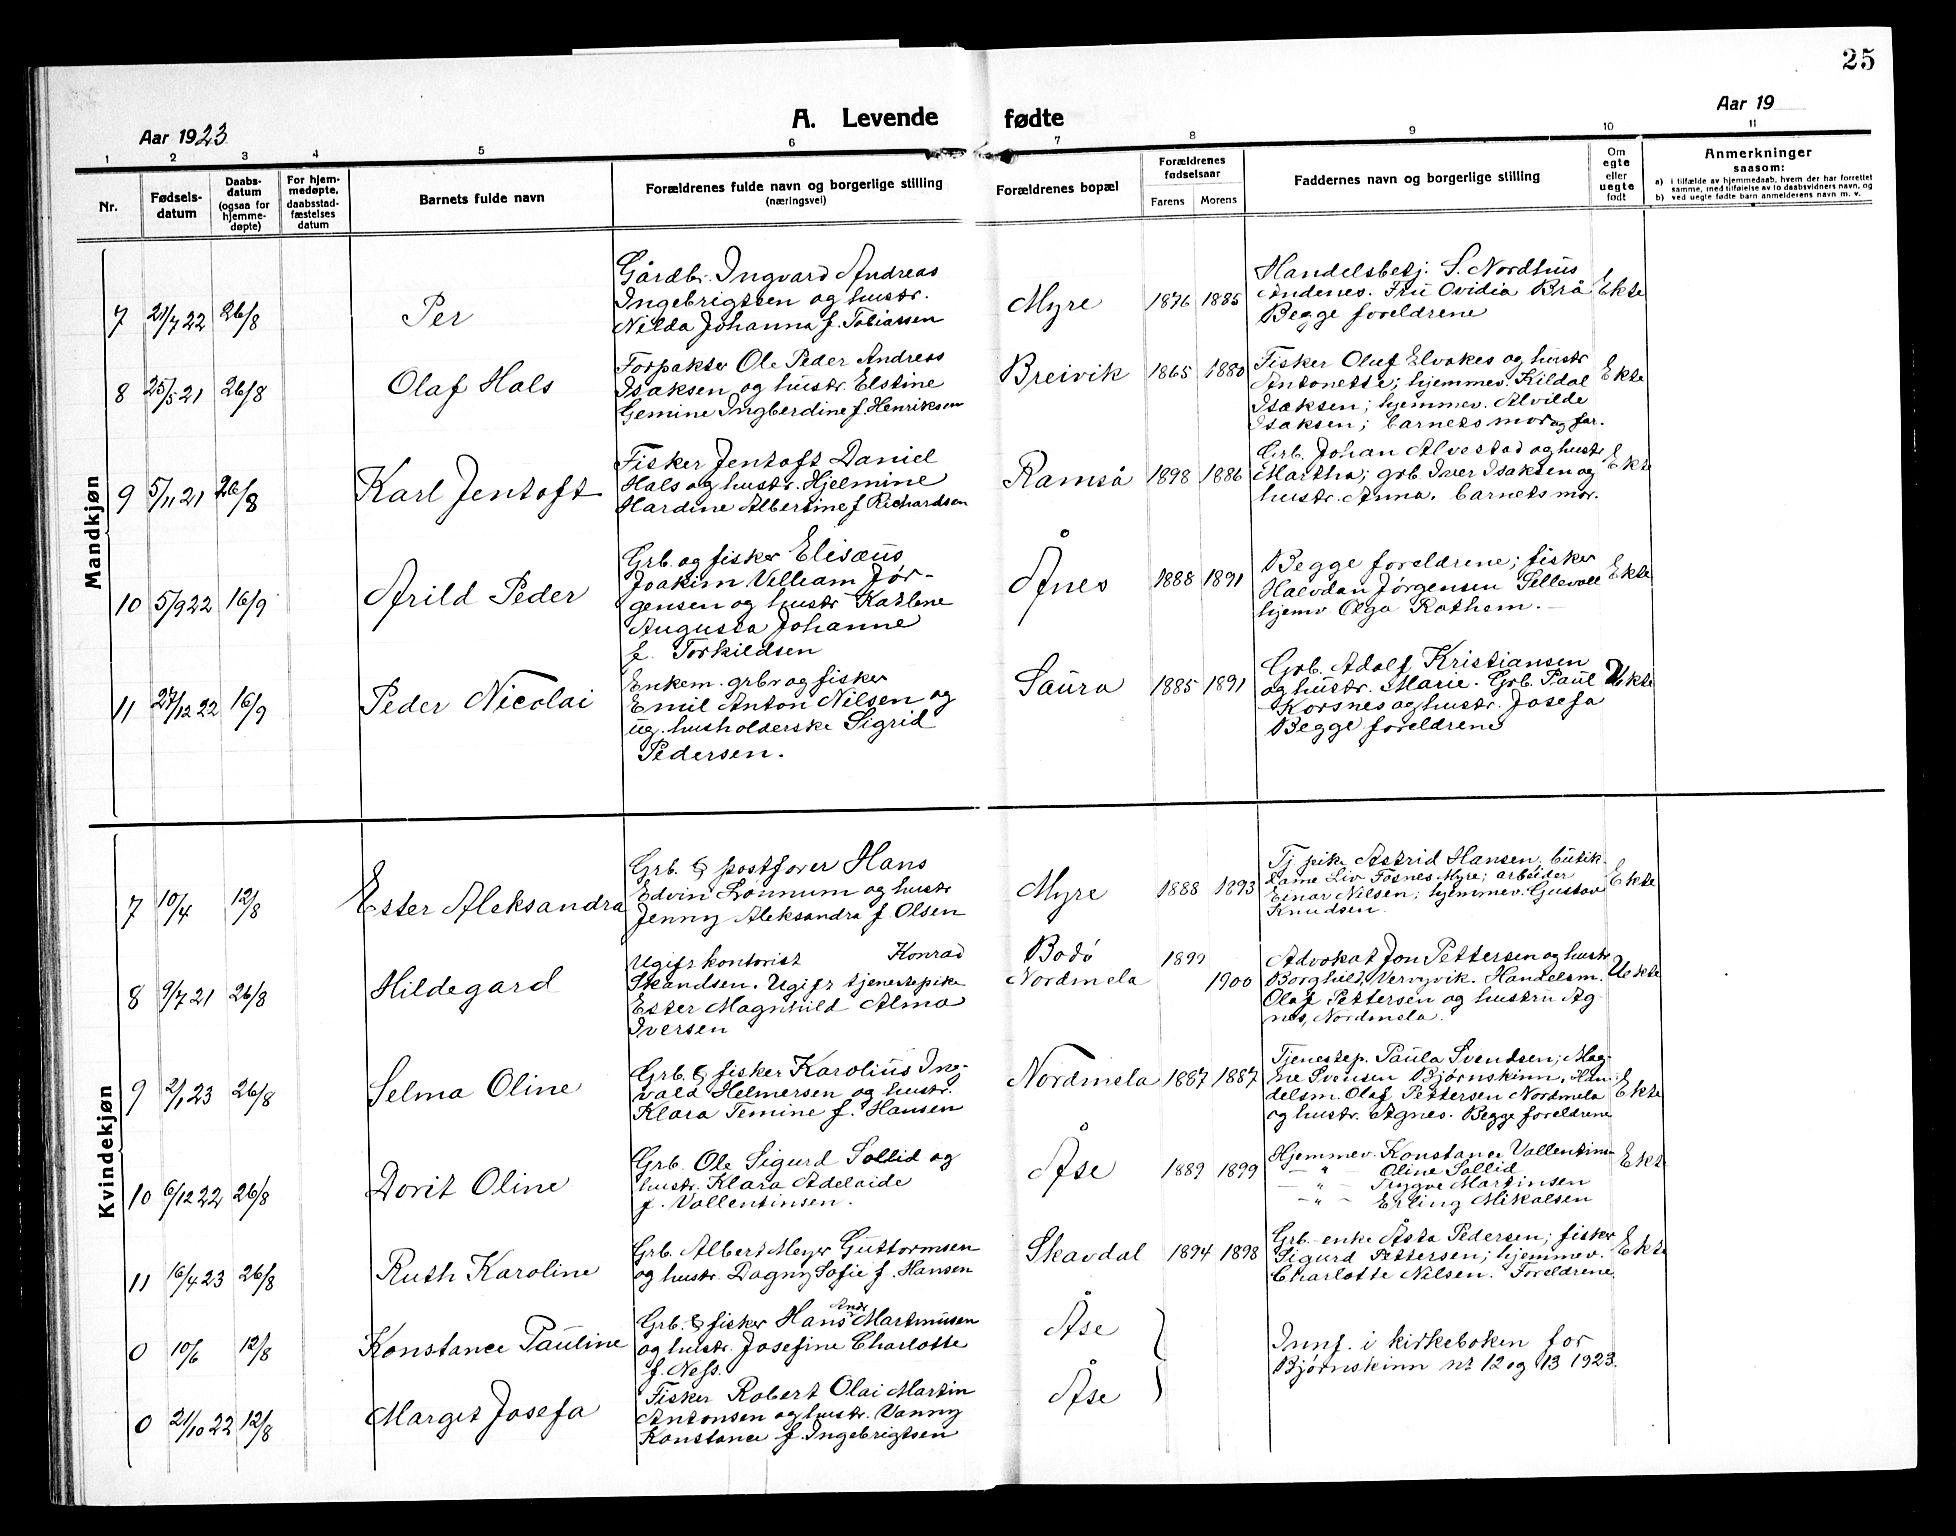 25
A. Levende fødte
Aar 1923
Aar 19
1 2 3 4 5 6 7 8 9 10 11
Nr.
Fødsels-
datum
Daabs-
datum
(ogsaa for
hjemme-
døpte)
For hjem-
medøpte,
daabsstad-
fæstelses
datum
Barnets fulde navn
Forældrenes fulde navn og borgerlige stilling
(næringsvei)
Forældrenes bopæl
Forældrenes
fødselsaar
Farens Morens
Faddernes navn og borgerlige stilling
Om
egte
eller
uegte
født
Anmerkninger
saasom:
a) i tilfælde av hjemmedaab, hvem der har forrettet
samme, med tilføielse av to daabsvidners navn, og
b) ved uegte fødte barn anmelderens navn m. v.
Mandkjøn
7 21/7 22 26/8 Per
Gårdbr. Ingvard Andreas
Ingebrigtsen og hustr.
Nilda Johanna f. Tobiassen
Myre 1876 1885
Handelsbetj. S. Nordhus
Andenes. Fru Ovidia Brå
Begge foreldrene
Ekte
8 25/5 21 26/8 Olaf Hals
Forpakter Ole Peder Andreas
Isaksen og hustr. Elstine
Gemine Ingberdine f. Henriksen
Breivik 1865 1880
Fisker Oluf Elvakes og hustr
Antonette; hjemmev. Kildal
Isaksen; hjemmev. Alvilde
Isaksen; barnets mor og far.
Ekte
9 5/11 21 26/8 Karl Jentoft
Fisker Jentoft Daniel
Hals og hustr. Hjelmine
Hardine Albertine f Richardsen
Ramså 1898 1886
Grb. Johan Alvestad og hustr
Martha; grb Iver Isaksen og
hustr. Anna. barnets mor.
Ekte
10 5/9 22 16/9 Arild Peder
Grb. og fisker Elisæus
Joakim Villiam Jør-
gensen og hustr Karlene
Augusta Johanne
f. Torkildsen
Ånes 1888 1891
Begge foreldrene; fisker
Halvdan Jørgensen Sellevoll
hjemv Olga Rathem. —
Ekte
11 27/12 22 16/9 Peder Nicolai
Enkem. grbr og fisker
Emil Anton Nilsen og
ug. husholderske Sigrid
Pedersen.
Saura 1885 1891
Grb. Adolf Kristiansen
og hustr. Marie. Grb. Paul
Korsnes og hustr. Josefa
Begge foreldrene
Uekte
Kvindekjøn
7 10/4 12/8 Ester Aleksandra
Grb. & postfører Hans
Edvin Lonnum og hustr
Jenny Aleksandra f. Olsen
Myre 1888 1893
Tj. pike Astrid Hansen, butik-
dame Liv Fosnes Myre; arbeider
Einar Nilsen; hjemmev. Gustav
Knudsen.
Ekte
8 9/7 21 26/8 Hildegard
Ugift kontorist Konrad
Skandsen. Ugift tjenestepike
Ester Magnhild Alma
Iversen
Bodø 1899
Nordmela 1900
Advokat Jon Pettersen og hustr
Borghild, Verngvik. Handelsm.
Olaf Pettersen og hustru Ag-
nes, Nordmela.
Uekte
9 2/1 23 26/8 Selma Oline
Grb. & fisker Karolius Ing-
vald Helmersen og hustr.
Klara Temine f. Hansen
Nordmela 1887 1887
Tjenestep. Paula Svendsen; Mag-
ne Svensen Bjørnskinn. Han-
delsm. Olaf Pettersen Nordmela
og hustr. Agnes. Begge foreldrene
Ekte
10 6/12 22 26/8 Dorit Oline
Grb. Ole Sigurd Sollid og
hustr. Klara Adelaide
f. Vallentinsen.
Åse 1889 1899
Hjemmev. Konstance Vallentins-
— " — Oline Sollid
— " — Trygve Martinsen
— " — Erling Mikalsen
Ekte
11 16/4 23 26/8 Ruth Karoline
Grb. Albert Meyer Guttormsen
og hustr. Dagny Sofie f. Hansen
Skavdal 1894 1898
Grb.-enke Åsta Pedersen; fisker
Sigurd Pettersen; hjemmev.
Charlotte Nilsen. Foreldrene.
Ekte
0 10/6 12/8 Konstance Pauline
Grb. & fisker Hans Andr Martinusen
og hustr. Josefine Charlotte
f. Ness.
Åse
Innf. i kirkeboken for
Bjørnskinn nr 12 og 13 1923.
0 21/10 22 12/8 Marget Josefa
Fisker Robert Olai Martin
Antonsen og hustr. Vanny
Konstance f. Ingebrigtsen
Åse